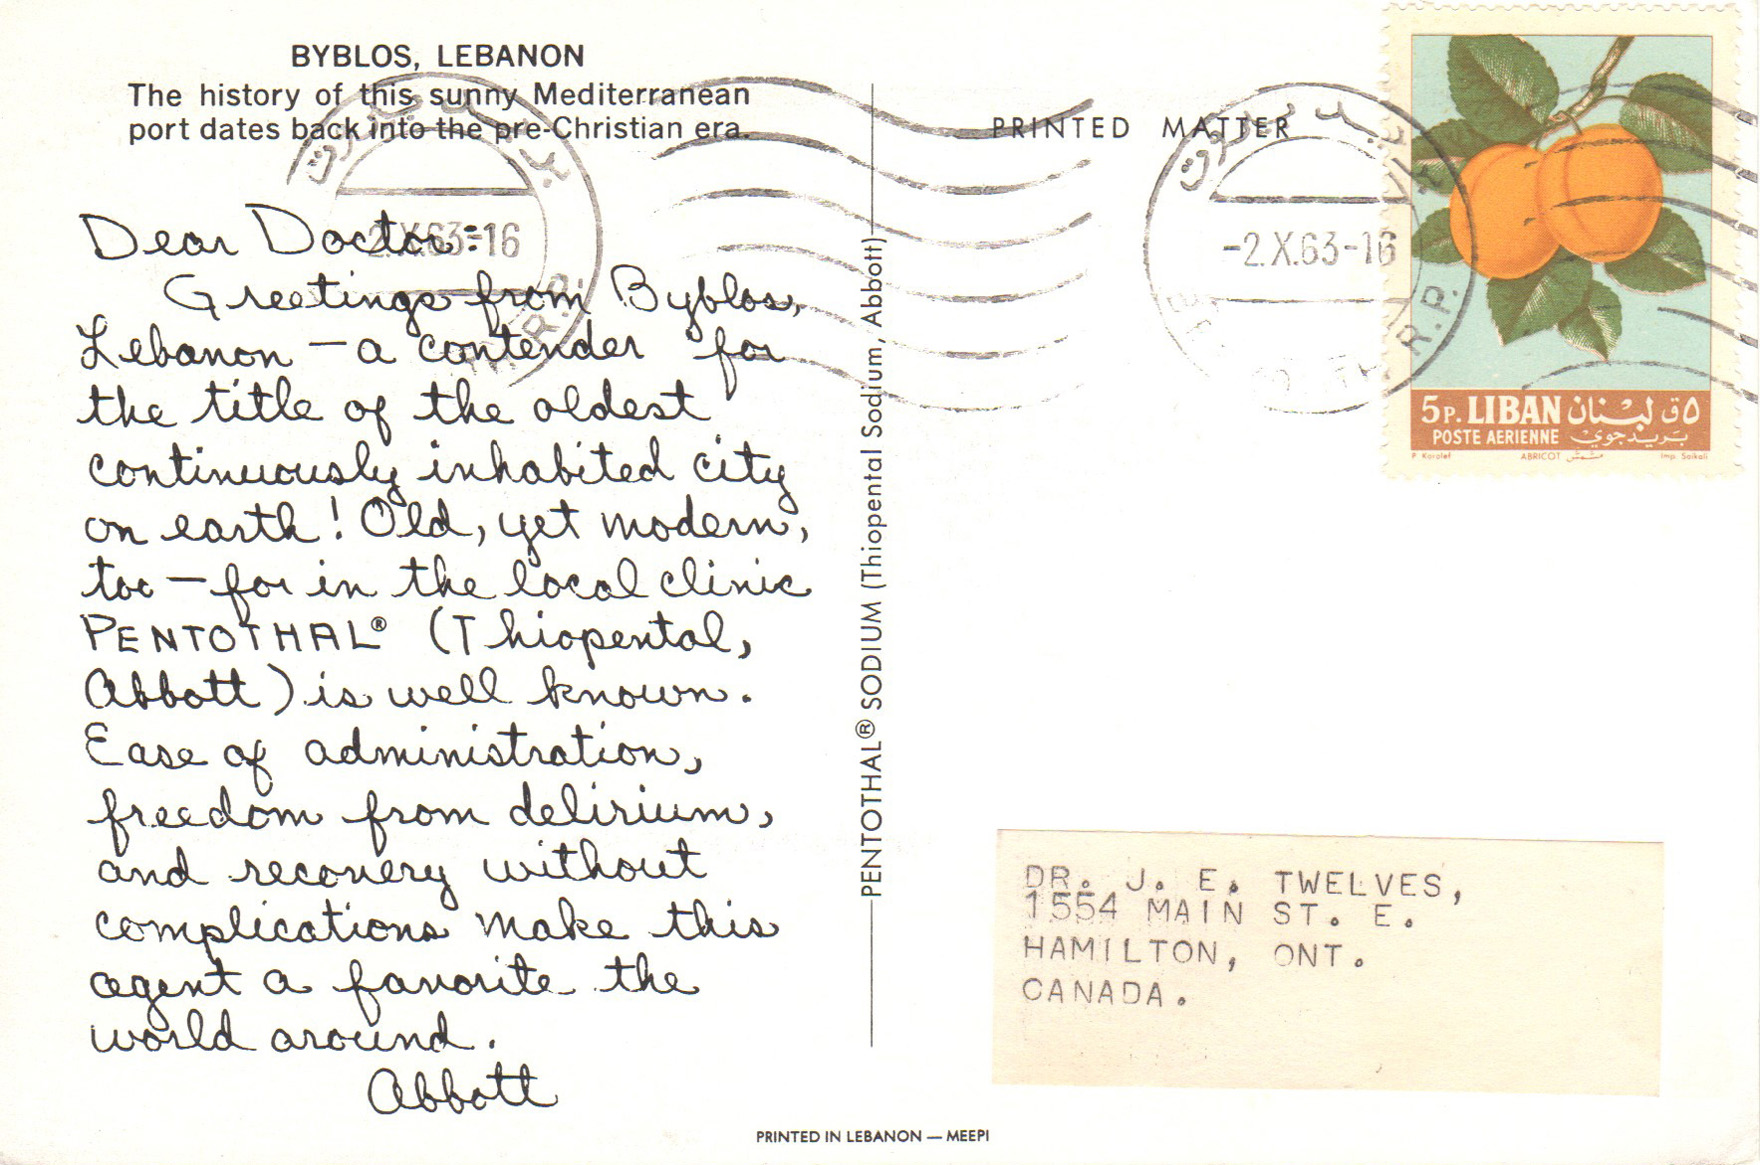 BYBLOS, LEBANON
The history of this sunny Mediterranean
port dates back into the pre-Christian era.
Dear Doctor:
Greetings from Byblos,
Lebanon — a contender for
the title of the oldest
continuously inhabited city
on earth! Old, yet modern,
too — for in the local clinic
PENTOTHAL® (Thiopental,
Abbott) is well known.
Ease of administration,
freedom from delirium,
and recovery without
complications make this
agent a favorite the
world around.
Abbott
PENTOTHAL® SODIUM (Thiopental Sodium, Abbott)
PRINTED MATTER
-2.X.63-16
R.P.
-2.X.63-16
R.P.
5P. LIBAN لبنان ٥ق
POSTE AERIENNE بريد جوي
P. Korolef ABRICOT مشمش Imp. Saikali
DR. J. E. TWELVES,
1554 MAIN ST. E.
HAMILTON, ONT.
CANADA.
PRINTED IN LEBANON — MEEPI